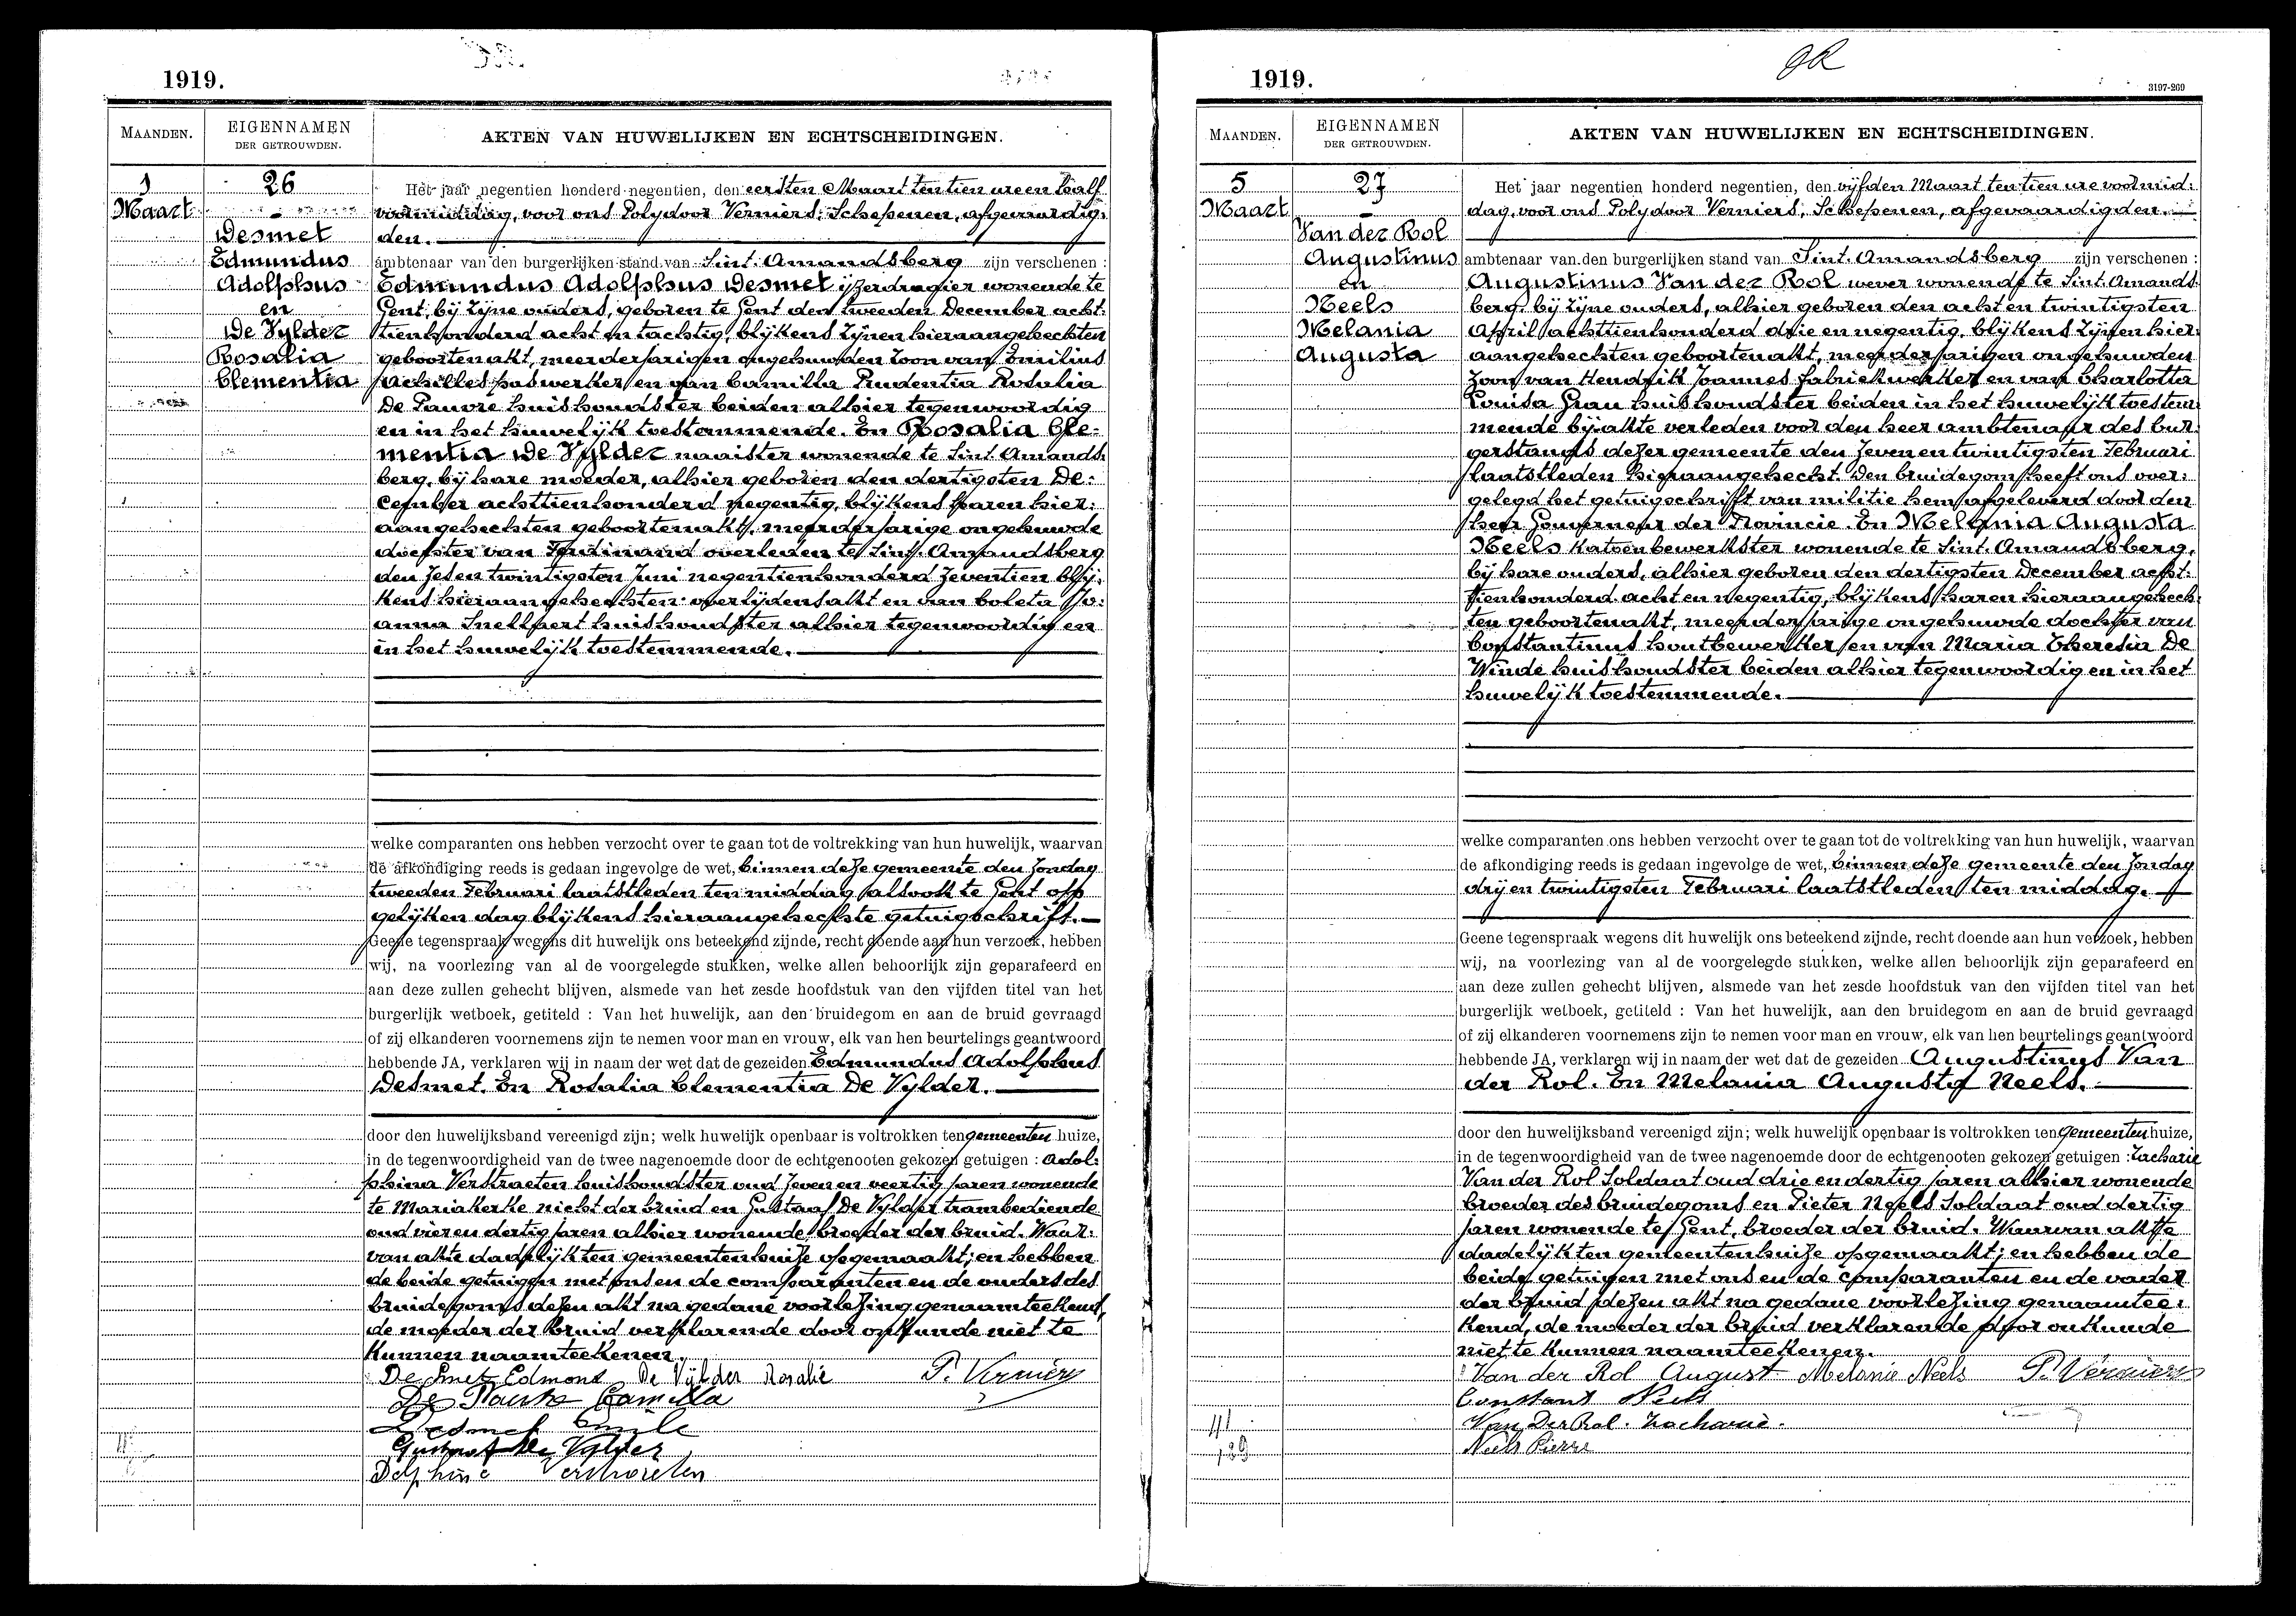 1919.
MAANDEN.
EIGENNAMEN
DER GETROUWDEN.
AKTEN VAN HUWELIJKEN EN ECHTSCHEIDINGEN.
1
Maart
26
Desmet
Edmundus
Adolphus
en
De Vylder
Rosalia
Clementia
Het jaar negentien honderd negentien, den eersten Maart ten tien ure en half
voormiddag, voor ons Polydoor Verniers, Schepenen, afgevaardig-
den.
ambtenaar van den burgerlijken stand van Sint. Amandsberg zijn verschenen :
Edmundus Adolphus Desmet ijzerdraaier wonende te
Gent, bij zijne ouders, geboren te Gent den tweeden December acht-
tienhonderd acht en tachtig, blijkens zijnen hieraangehechten
geboortenakt, meerderjarigen ongehuwden zoon van Emilius
Achilles paswerker en van Camilla Prudentia Rosalia
De Pauvre huishoudster beiden alhier tegenwoordig
en in het huwelijk toestemmende. En Rosalia Cle-
mentia De Vylder naaister wonende te Sint. Amands-
berg, bij hare moeder, alhier geboren den dertigsten De-
cember achttienhonderd negentig, blijkens haren hier-
aangehechten geboortenakt, meerderjarige ongehuwde
dochter van Ferdinand overleden te Sint. Amandsberg
den zesen twintigsten Juni negentienhonderd zeventien blij-
kens hieraangehechten overlijdensakt en van Coleta Jo-
anna Snellaert huishoudster alhier tegenwoordig en
in het huwelijk toestemmende.
welke comparanten ons hebben verzocht over te gaan tot de voltrekking van hun huwelijk, waarvan
de afkondiging reeds is gedaan ingevolge de wet, binnen deze gemeente den Zondag
tweeden Februari laatstleden ten middag alsook te Gent op
gelijken dag blijkens hieraangehechte getuigschrift.
Geene tegenspraak wegens dit huwelijk ons beteekend zijnde, recht doende aan hun verzoek, hebben
wij, na voorlezing van al de voorgelegde stukken, welke allen behoorlijk zijn geparafeerd en
aan deze zullen gehecht blijven, alsmede van het zesde hoofdstuk van den vijfden titel van het
burgerlijk wetboek, getiteld : Van het huwelijk, aan den bruidegom en aan de bruid gevraagd
of zij elkanderen voornemens zijn te nemen voor man en vrouw, elk van hen beurtelings geantwoord
hebbende JA, verklaren wij in naam der wet dat de gezeiden Edmundus Adolphus
Desmet. En Rosalia Clementia De Vylder.
door den huwelijksband vereenigd zijn; welk huwelijk openbaar is voltrokken ten gemeenten huize,
in de tegenwoordigheid van de twee nagenoemde door de echtgenooten gekozen getuigen : Adol-
phina Verstraeten huishoudster oud zeven en veertig jaren wonende
te Mariakerke nicht der bruid en Gustaaf De Vylder trambediende
oud vier en dertig jaren alhier wonende broeder der bruid. Waar-
van akte dadelijk ten gemeentenhuize opgemaakt; en hebben
de beide getuigen met ons en de comparanten en de ouders des
bruidegoms dezen akt na gedane voorlezing genaamteekend,
de moeder der bruid verklarende door onkunde niet te
kunnen naamteekenen.
De Smet Edmond De Vylder Rosalie P. Verniers
De Pauvre Camilla
Desmet Emile
Gustaaf De Vylder
Delphine Verstraeten
1919.
3197-269
MAANDEN.
EIGENNAMEN
DER GETROUWDEN.
AKTEN VAN HUWELIJKEN EN ECHTSCHEIDINGEN.
5
Maart
27
Van der Rol
Augustinus
en
Neels
Melania
Augusta
Het jaar negentien honderd negentien, den vijfden Maart ten tien ure voormid-
dag, voor ons Polydoor Verniers, Schepenen, afgevaardigden.
ambtenaar van den burgerlijken stand van Sint. Amandsberg zijn verschenen :
Augustinus Van der Rol wever wonende te Sint. Amands-
berg, bij zijne ouders, alhier geboren den acht en twintigsten
April achttienhonderd drie en negentig, blijkens zijnen hier-
aangehechten geboortenakt, meerderjarigen ongehuwden
zoon van Hendrik Joannes fabriekwerker en van Charlotta
Louisa Grau huishoudster beiden in het huwelijk toestem-
mende bij akte verleden voor den heer ambtenaar des bur-
gerstands dezer gemeente den zeven en twintigsten Februari
laatstleden hieraangehecht. Den bruidegom heeft ons over-
gelegd het getuigschrift van militie hem afgeleverd door den
heer Gouverneur der Provincie. En Melania Augusta
Neels katoenbewerkster wonende te Sint. Amandsberg,
bij hare ouders, alhier geboren den dertigsten December acht-
tienhonderd acht en negentig, blijkens haren hieraangehech-
ten geboortenakt, meerderjarige ongehuwde dochter van
Constantinus houtbewerker en van Maria Theresia De
Winde huishoudster beiden alhier tegenwoordig en in het
huwelijk toestemmende.
welke comparanten ons hebben verzocht over te gaan tot de voltrekking van hun huwelijk, waarvan
de afkondiging reeds is gedaan ingevolge de wet, binnen deze gemeente den Zondag
drij en twintigsten Februari laatstleden ten middag.
Geene tegenspraak wegens dit huwelijk ons beteekend zijnde, recht doende aan hun verzoek, hebben
wij, na voorlezing van al de voorgelegde stukken, welke allen behoorlijk zijn geparafeerd en
aan deze zullen gehecht blijven, alsmede van het zesde hoofdstuk van den vijfden titel van het
burgerlijk wetboek, getiteld : Van het huwelijk, aan den bruidegom en aan de bruid gevraagd
of zij elkanderen voornemens zijn te nemen voor man en vrouw, elk van hen beurtelings geantwoord
hebbende JA, verklaren wij in naam der wet dat de gezeiden Augustinus Van
der Rol. En Melania Augusta Neels.
door den huwelijksband vereenigd zijn; welk huwelijk openbaar is voltrokken ten gemeenten huize,
in de tegenwoordigheid van de twee nagenoemde door de echtgenooten gekozen getuigen : Zacharie
Van der Rol Soldaat oud drie en dertig jaren alhier wonende
broeder des bruidegoms en Pieter Neels Soldaat oud dertig
jaren wonende te Gent, broeder der bruid. Waarvan akte
dadelijk ten gemeentenhuize opgemaakt; en hebben de
beide getuigen met ons en de comparanten en de vader
der bruid dezen akt na gedane voorlezing genaamtee-
kend, de moeder der bruid verklarende door onkunde
niet te kunnen naamteekenen.
Van der Rol August Melanie Neels P. Verniers
Constant Neels
Van Der Rol Zacharie.
Neels Pierre